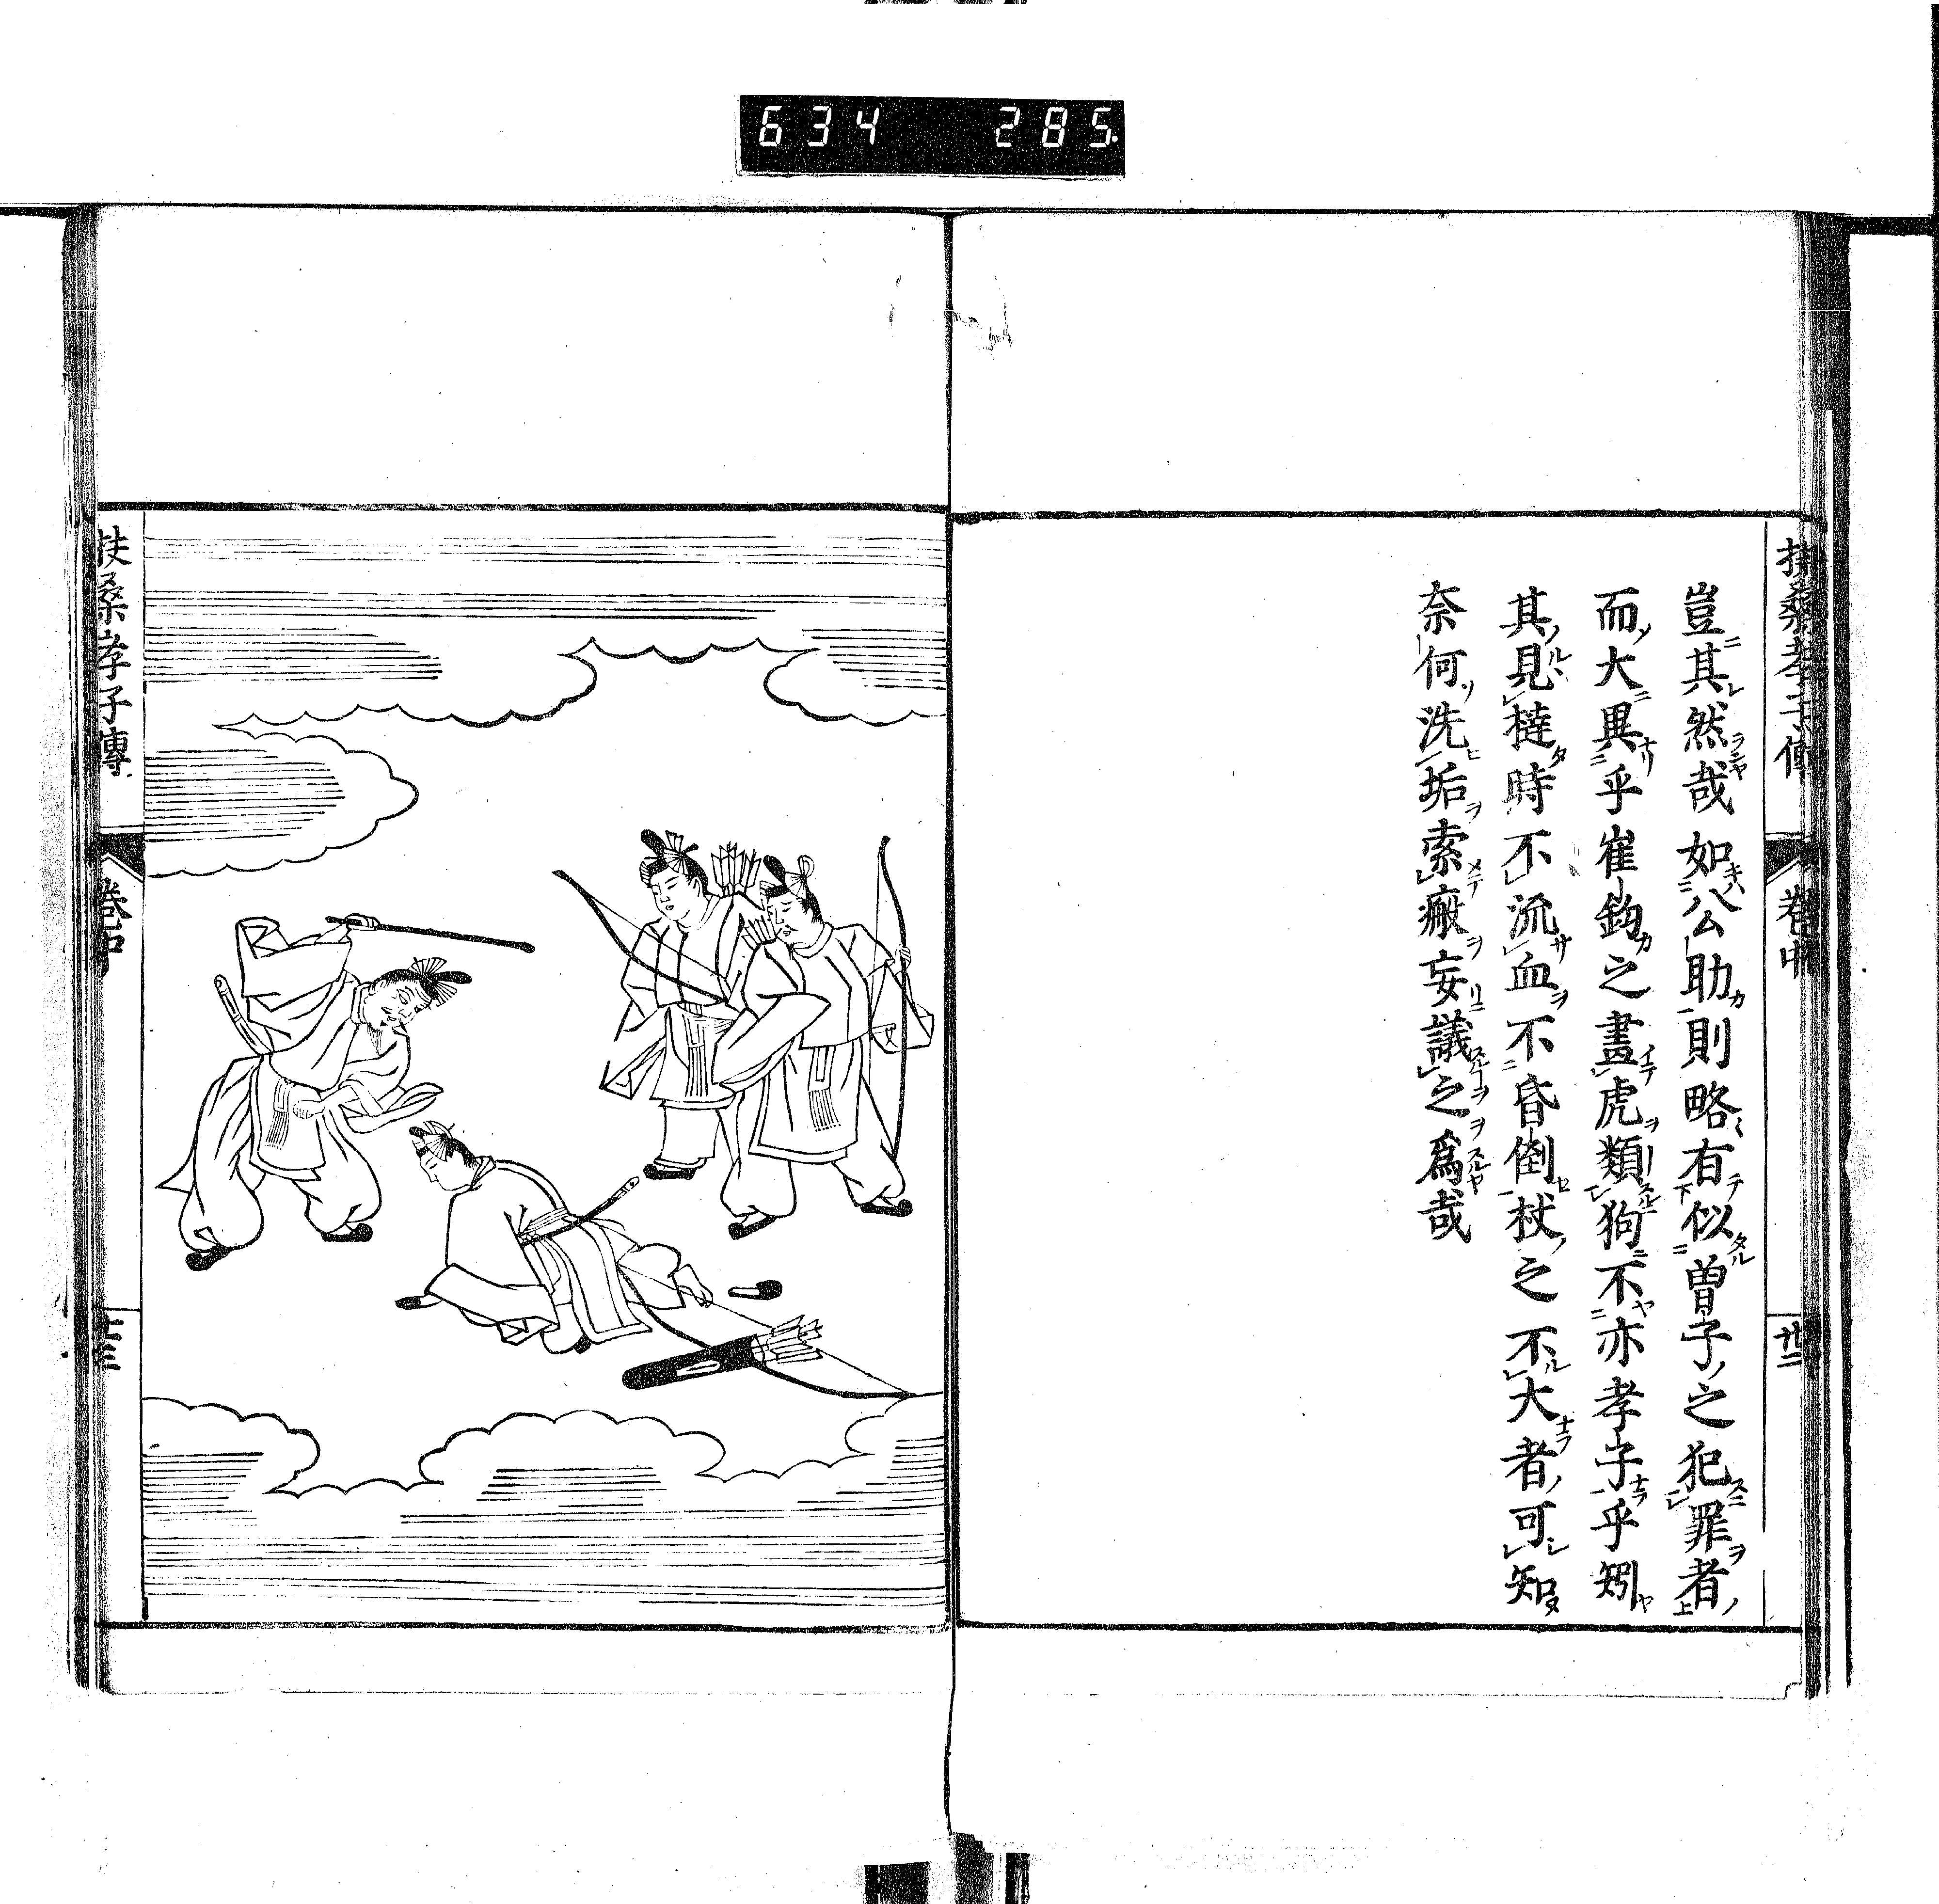 634 285
扶桑孝子傳 卷中 廿二
豈其然哉如公助則略有似曽子之犯罪者
而大異乎崔鈞之畫虎類狗不亦孝子乎矧
其見撻時不流血不昏倒杖之不大者可知
奈何洗垢索瘢妄議之爲哉
扶桑孝子傳 卷中 廿三